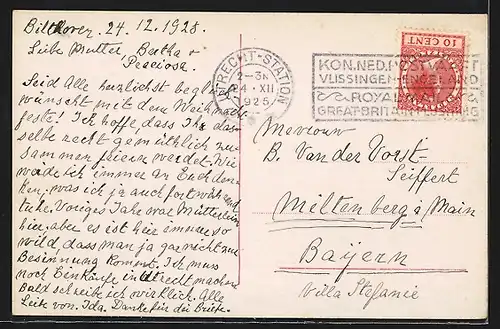 Bilthoven, 24.12.1925.
Liebe Mutter, Bertha &
Preciosa.
Seid Alle herzlichst beglück-
wünscht mit dem Weihnachts-
feste! Ich hoffe, dass Ihr das-
selbe recht gemütlich zu-
sammen feiern werdet. Wie
werde ich immer an Euch den-
ken, was ich ja auch fortwährend
tue. Voriges Jahr war Mütterlein
hier, aber es ist hier immer so
wild, dass man ja gar nicht zur
Besinnung kommt. Ich muss
noch Einkäufe in Utrecht machen
Bald schreibe ich wirklich. Alle
Liebe von Ida. Danke für die Briefe.
UTRECHT-STATION
2-3N
24.XII
1925
KON.NED.POSTVAART
VLISSINGEN-ENGELAND
ROYAL
GREAT BRITAIN FLUSHING
10 CENT
Mevrouw
B. Van der Vorst-
Seiffert
Miltenberg a/Main
Bayern
Villa Stefanie